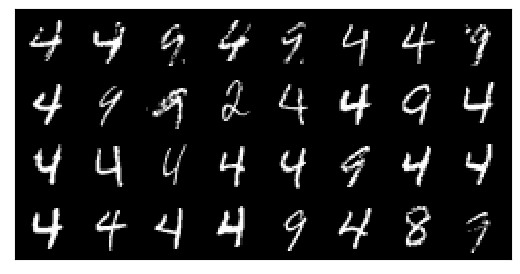 4 4 9 4 9 4 4 9
4 9 9 2 4 4 9 4
4 4 4 4 4 9 4 4
4 4 4 4 9 4 8 9